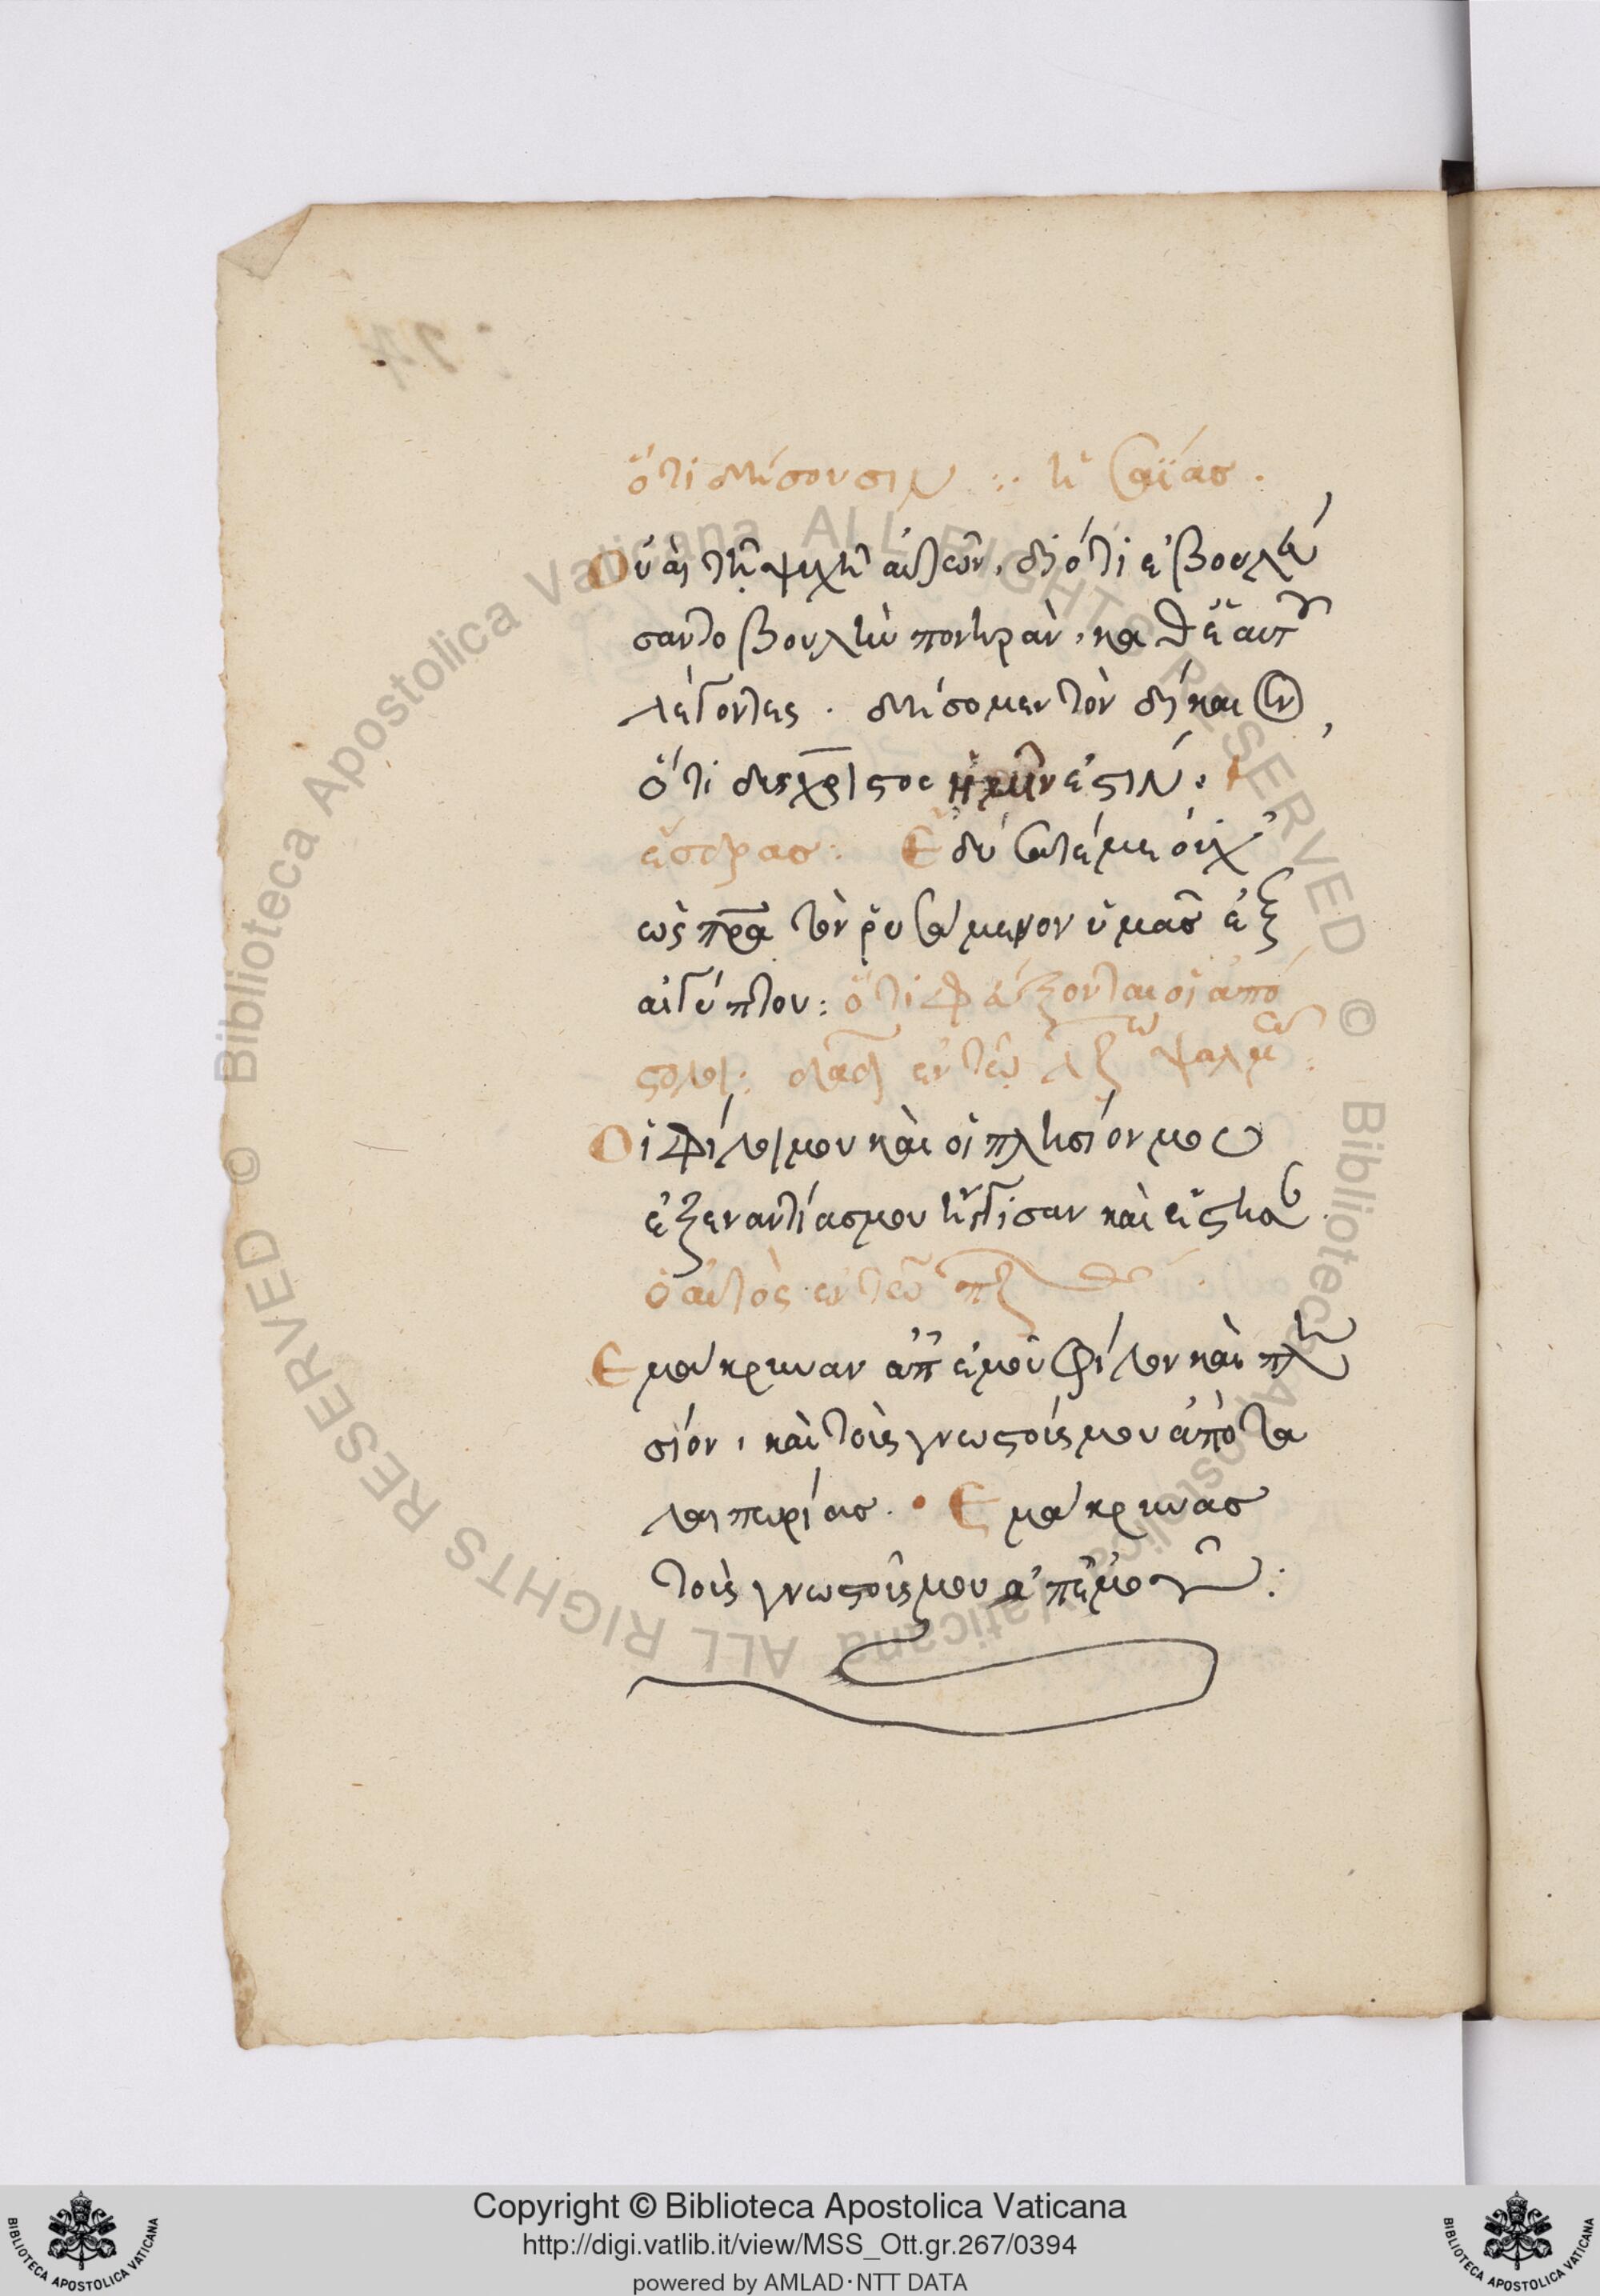 ὅτι δήσουσιν :· ἡσαΐας ·
Οὐαὶ τῇ ψυχῇ αὐτῶν, διότι ἐβουλεύ
σαντο βουλὴν πονηρὰν, καθ' ἑαυτ
λέγοντες · δήσομεν τὸν δίκαιον,
ὅτι δύσχρηστος ἡμῖν ἐστιν ·
ἔσδρας : Ἐδήσατέ με οὐχ
ὡς πρα τὸν ῥυσάμενον ὑμᾶς ἐξ
αἰγύπτου : ὅτι φεύξονται οἱ ἀπό
στολοι : δαδ ἐν τῷ λζω ψαλμῶ :
Οἱ φίλοι μου καὶ οἱ πλησίον μου
ἐξ ἐναντίας μου ἤγγισαν καὶ ἔστησαν
ὁ αὐτὸς ἐν τῷ πζ
Ἐμάκρυναν ἀπ' ἐμοῦ φίλον καὶ πλη
σίον, καὶ τοὺς γνωστούς μου ἀπὸ τα
λαιπωρίας · Ἐμάκρυνας
τοὺς γνωστούς μου ἀπ' ἐμοῦ :
Copyright © Biblioteca Apostolica Vaticana
http://digi.vatlib.it/view/MSS_Ott.gr.267/0394
powered by AMLAD·NTT DATA